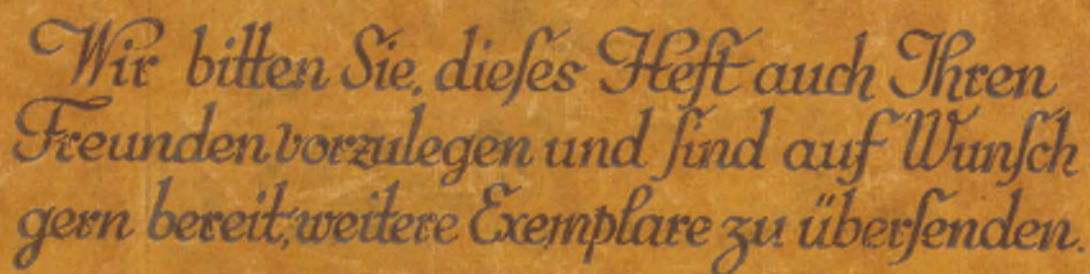 Wir bitten Sie, dieſes Heft auch Ihren
Freunden vorzulegen und ſind auf Wunſch
gern bereit, weitere Exemplare zu überſenden.